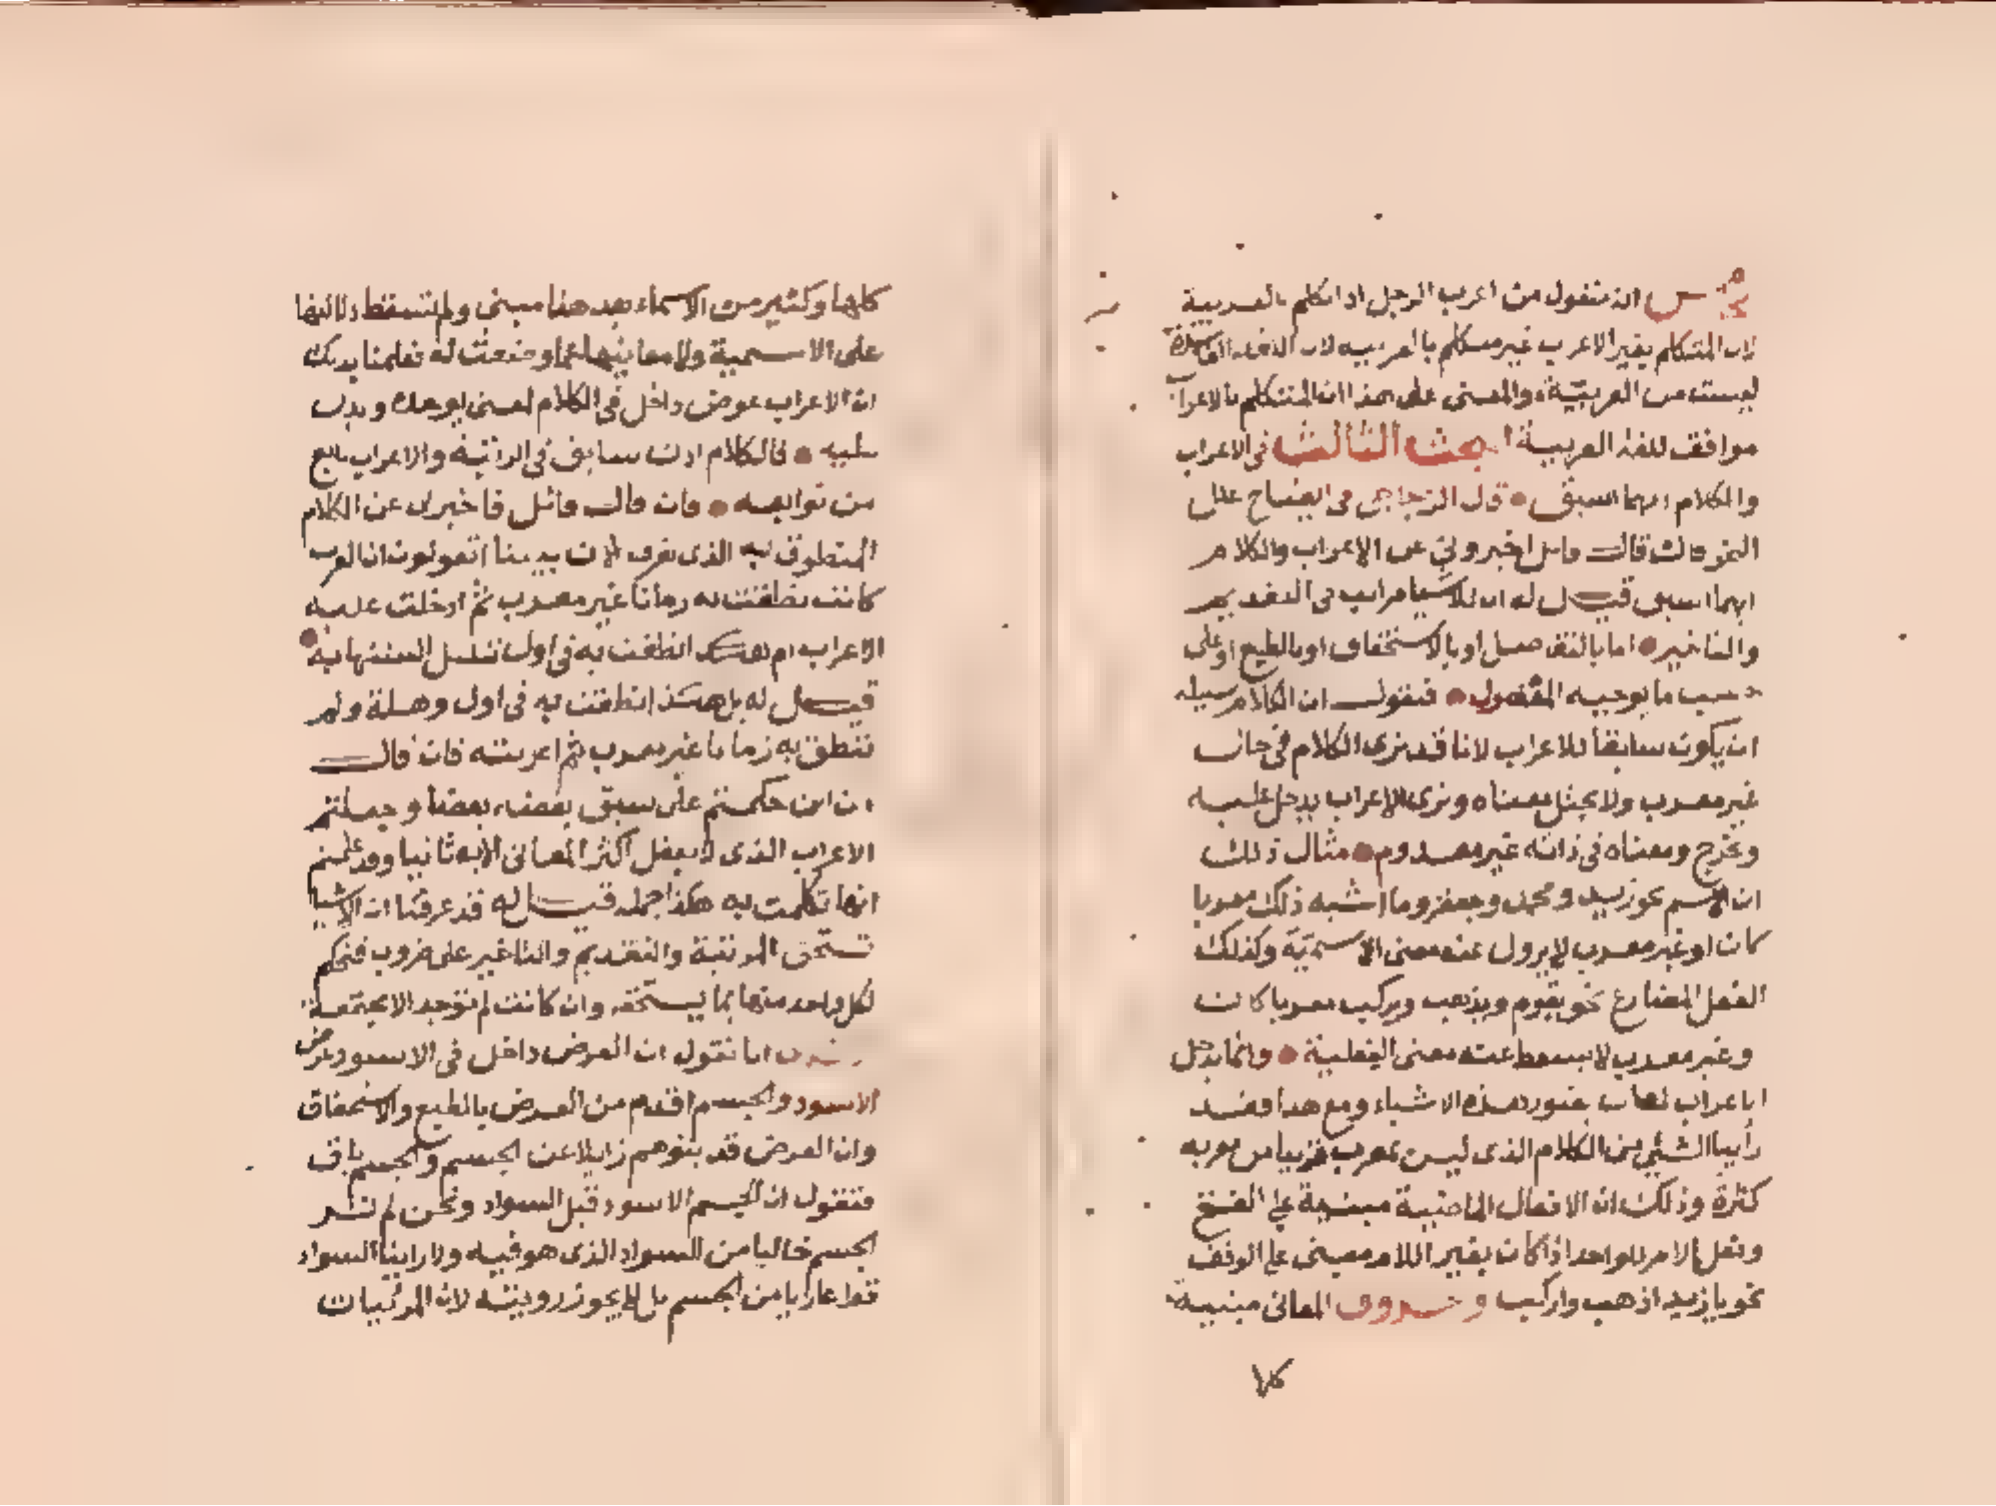 انه منقول من اعرب الرجل اذا تكلم بالعربية
لان المتكلم بغير الاعراب غير متكلم بالعربيه لان اللغه الفاسدة
ليست من العربيّة والمعنى على هذا ان المتكلم بالاعراب
موافق للغة العربية البحث الثالث في الاعراب
والكلام ايهما اسبق قال الزجاجي في ايضاح علل
النحو فان قال قائل اخبروني عن الاعراب والكلام
ايهما اسبق قيل له ان للاشيا مراتب في التقديم
والتاخير اما بالتفاضل او بالاستحقاق او بالطبع او على
حسب ما يوجبه المعقول فنقول ان الكلام سبيله
ان يكون سابقا للاعراب لانا قد نرى الكلام في حال
غير معرب ولا يختل معناه ونرى الاعراب يدخل عليه
ويخرج ومعناه في ذاته غير معدوم مثال ذلك
ان الاسم نحو زيد ومحمد وجعفر وما اشبه ذلك معربا
كان او غير معرب لا يزول عنه معنى الاسميّة وكذلك
الفعل المضارع نحو يقوم ويذهب ويركب معربا كان
وغير معرب لا يسقط عنه معنى الفعلية وانما يدخل
الاعراب لمعان تعتور هذه الاشياء ومع هذا فقد
راينا الشئ من الكلام الذي ليس بمعرب قريبا من معربه
كثرة وذلك ان الافعال الماضية مبنية على الفتح
وفعل الامر للواحد اذا كان بغير اللام مبني على الوقف
نحو يا زيد اذهب واركب وحروف المعاني مبنية
كلها
كلها وكثير من الاسماء بعد هذا مبني ولم تسقط دلالتها
على الاسمية ولا معانيها عما وضعت له فعلمنا بذلك
ان الاعراب عرض داخل في الكلام لمعنى يوجده ويدل
عليه فالكلام اذن سابق في الرتبة والاعراب تابع
من توابعه فان قال قائل فاخبرني عن الكلام
المنطوق به الذي نعرفه الان بيننا اتقولون ان العرب
كانت نطقت به زمانا غير معرب ثم ادخلت عليه
الاعراب ام هكذا نطقت به في اول تبلبل السنتها به
قيل له بل هكذا نطقت به في اول وهلة ولم
تنطق به زمانا غير معرب ثم اعربته فان قال
من اين حكمتم على سبق بعضه بعضا وجعلتم
الاعراب الذي لا يعقل اكثر المعاني الا به ثانيا وقد علمتم
انها تكلمت به هكذا جملة قيل له قد عرفنا ان الاشيا
تستحق المرتبة والتقديم والتاخير على ضروب فنحكم
لكل واحد منها بما يستحقه وان كانت لم توجد الا مجتمعة
انا نقول ان العرض داخل في الاسود عرض
الاسود والجسم اقدم من العرض بالطبع والاستحقاق
وان العرض قد يتوهم زايلا عن الجسم والجسم باق
فنقول ان الجسم الاسود قبل السواد ونحن لم نر
الجسم خاليا من السواد الذي هو فيه ولا راينا السواد
قط عاريا من الجسم بل لا يجوز رويته لان المرئيات